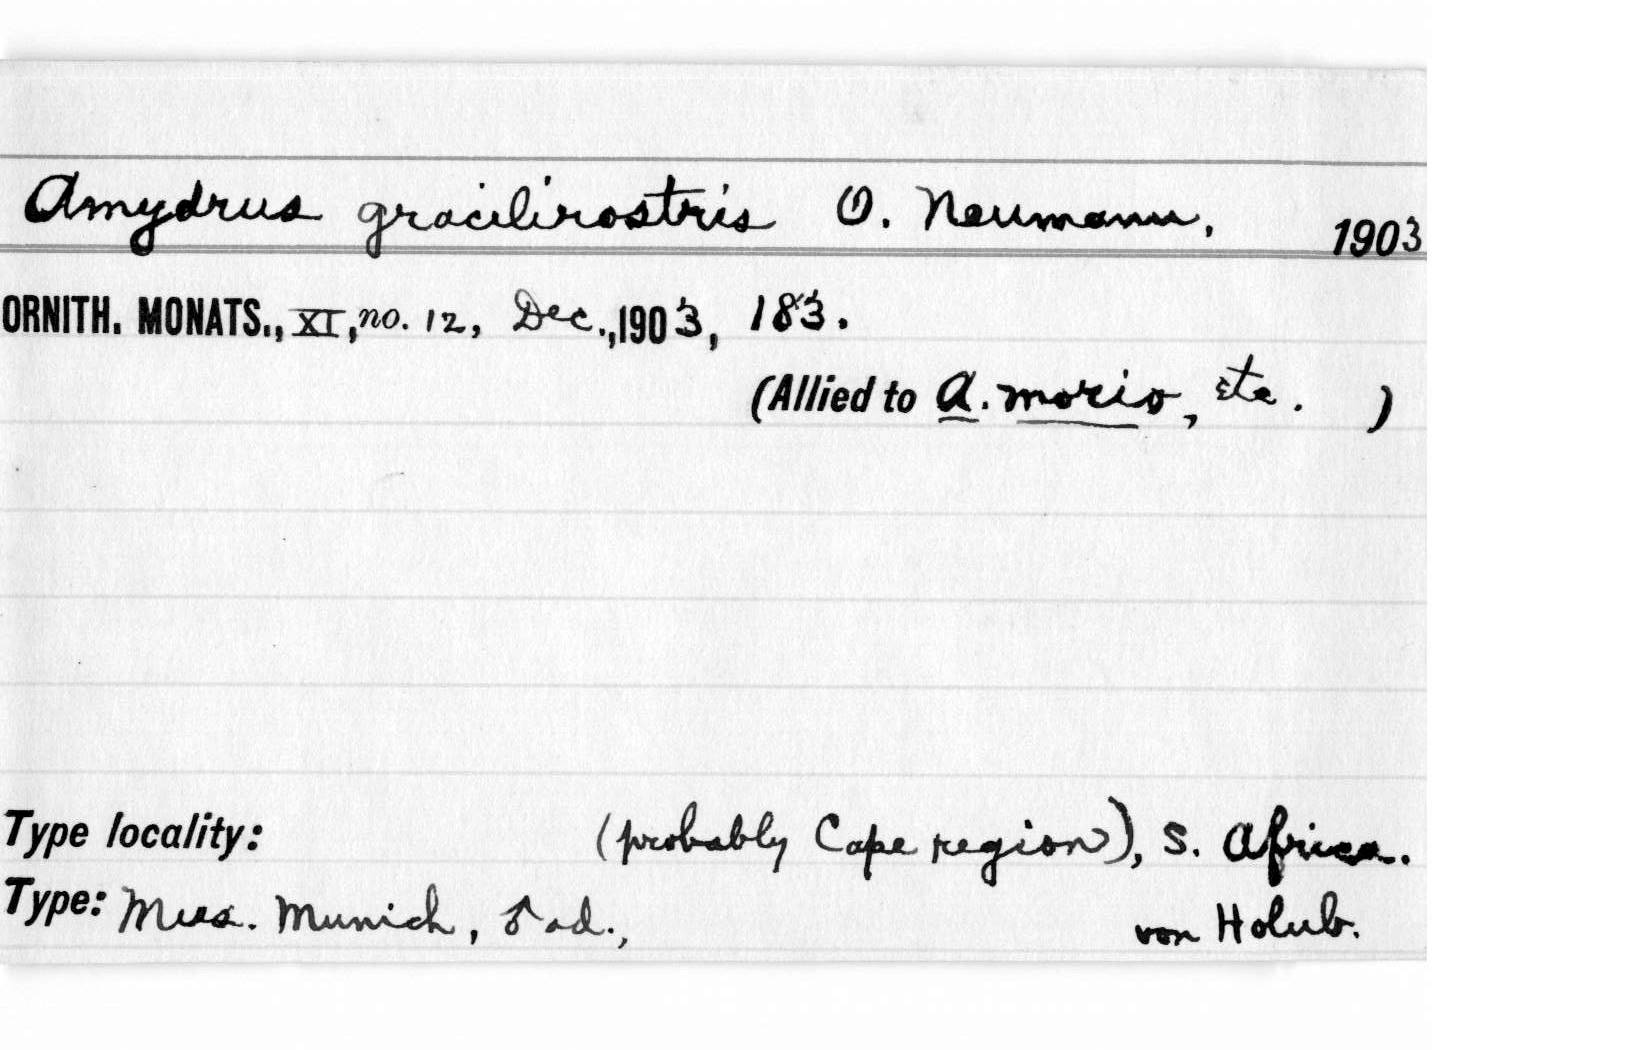 Amydrus gracilirostris O. Neumann, 1903
ORNITH. MONATS., XI, no. 12, Dec., 1903, 183.
(Allied to A. morio, etc. )
Type locality: (probably Cape region), S. Africa.
Type: Mus. Munich, ♂ ad., von Holub.